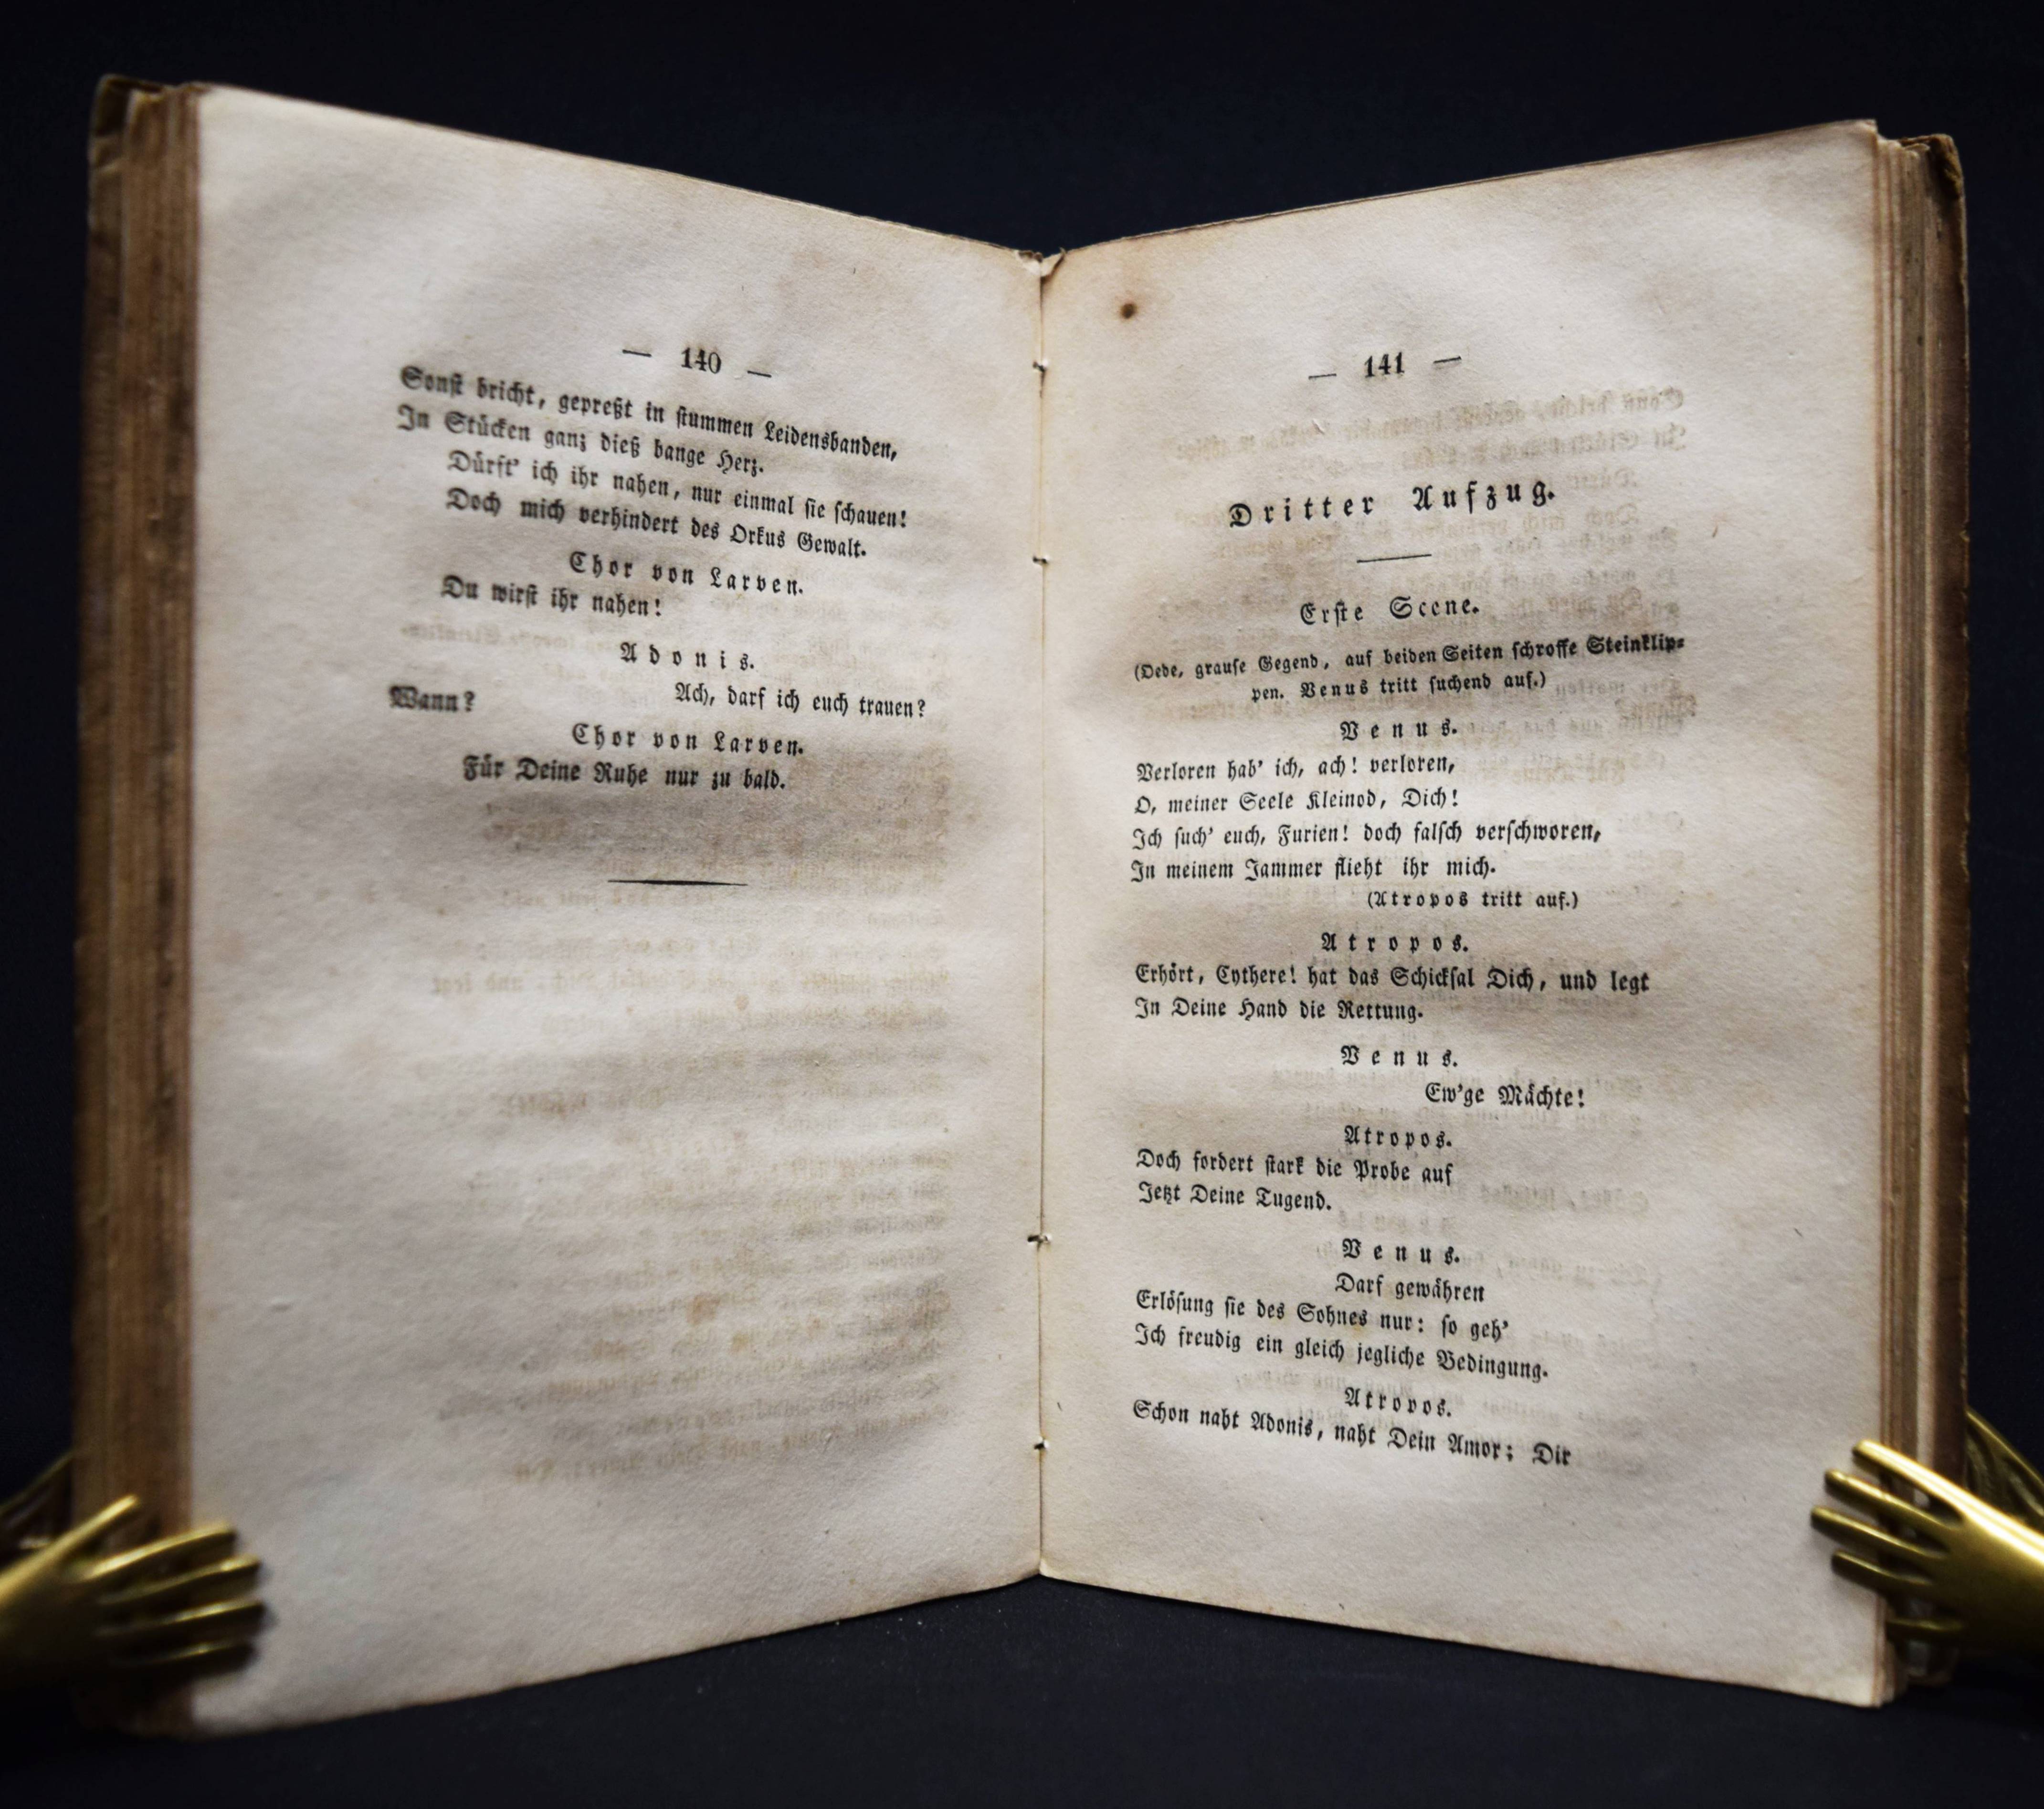 — 140 —
Sonſt bricht, gepreßt in ſtummen Leidensbanden,
In Stücken ganz dieß bange Herz.
Dürft' ich ihr nahen, nur einmal ſie ſchauen!
Doch mich verhindert des Orkus Gewalt.
Chor von Larven.
Du wirſt ihr nahen!
Adonis.
Ach, darf ich euch trauen?
Wann?
Chor von Larven.
Für Deine Ruhe nur zu bald.
— 141 —
Dritter Aufzug.
Erſte Scene.
(Oede, grauſe Gegend, auf beiden Seiten ſchroffe Steinklip-
pen. Venus tritt ſuchend auf.)
Venus.
Verloren hab' ich, ach! verloren,
O, meiner Seele Kleinod, Dich!
Ich ſuch' euch, Furien! doch falſch verſchworen,
In meinem Jammer flieht ihr mich.
(Atropos tritt auf.)
Atropos.
Erhört, Cythere! hat das Schickſal Dich, und legt
In Deine Hand die Rettung.
Venus.
Ew'ge Mächte!
Atropos.
Doch fordert ſtark die Probe auf
Jetzt Deine Tugend.
Venus.
Darf gewähren
Erlöſung ſie des Sohnes nur: ſo geh'
Ich freudig ein gleich jegliche Bedingung.
Atropos.
Schon naht Adonis, naht Dein Amor; Dir